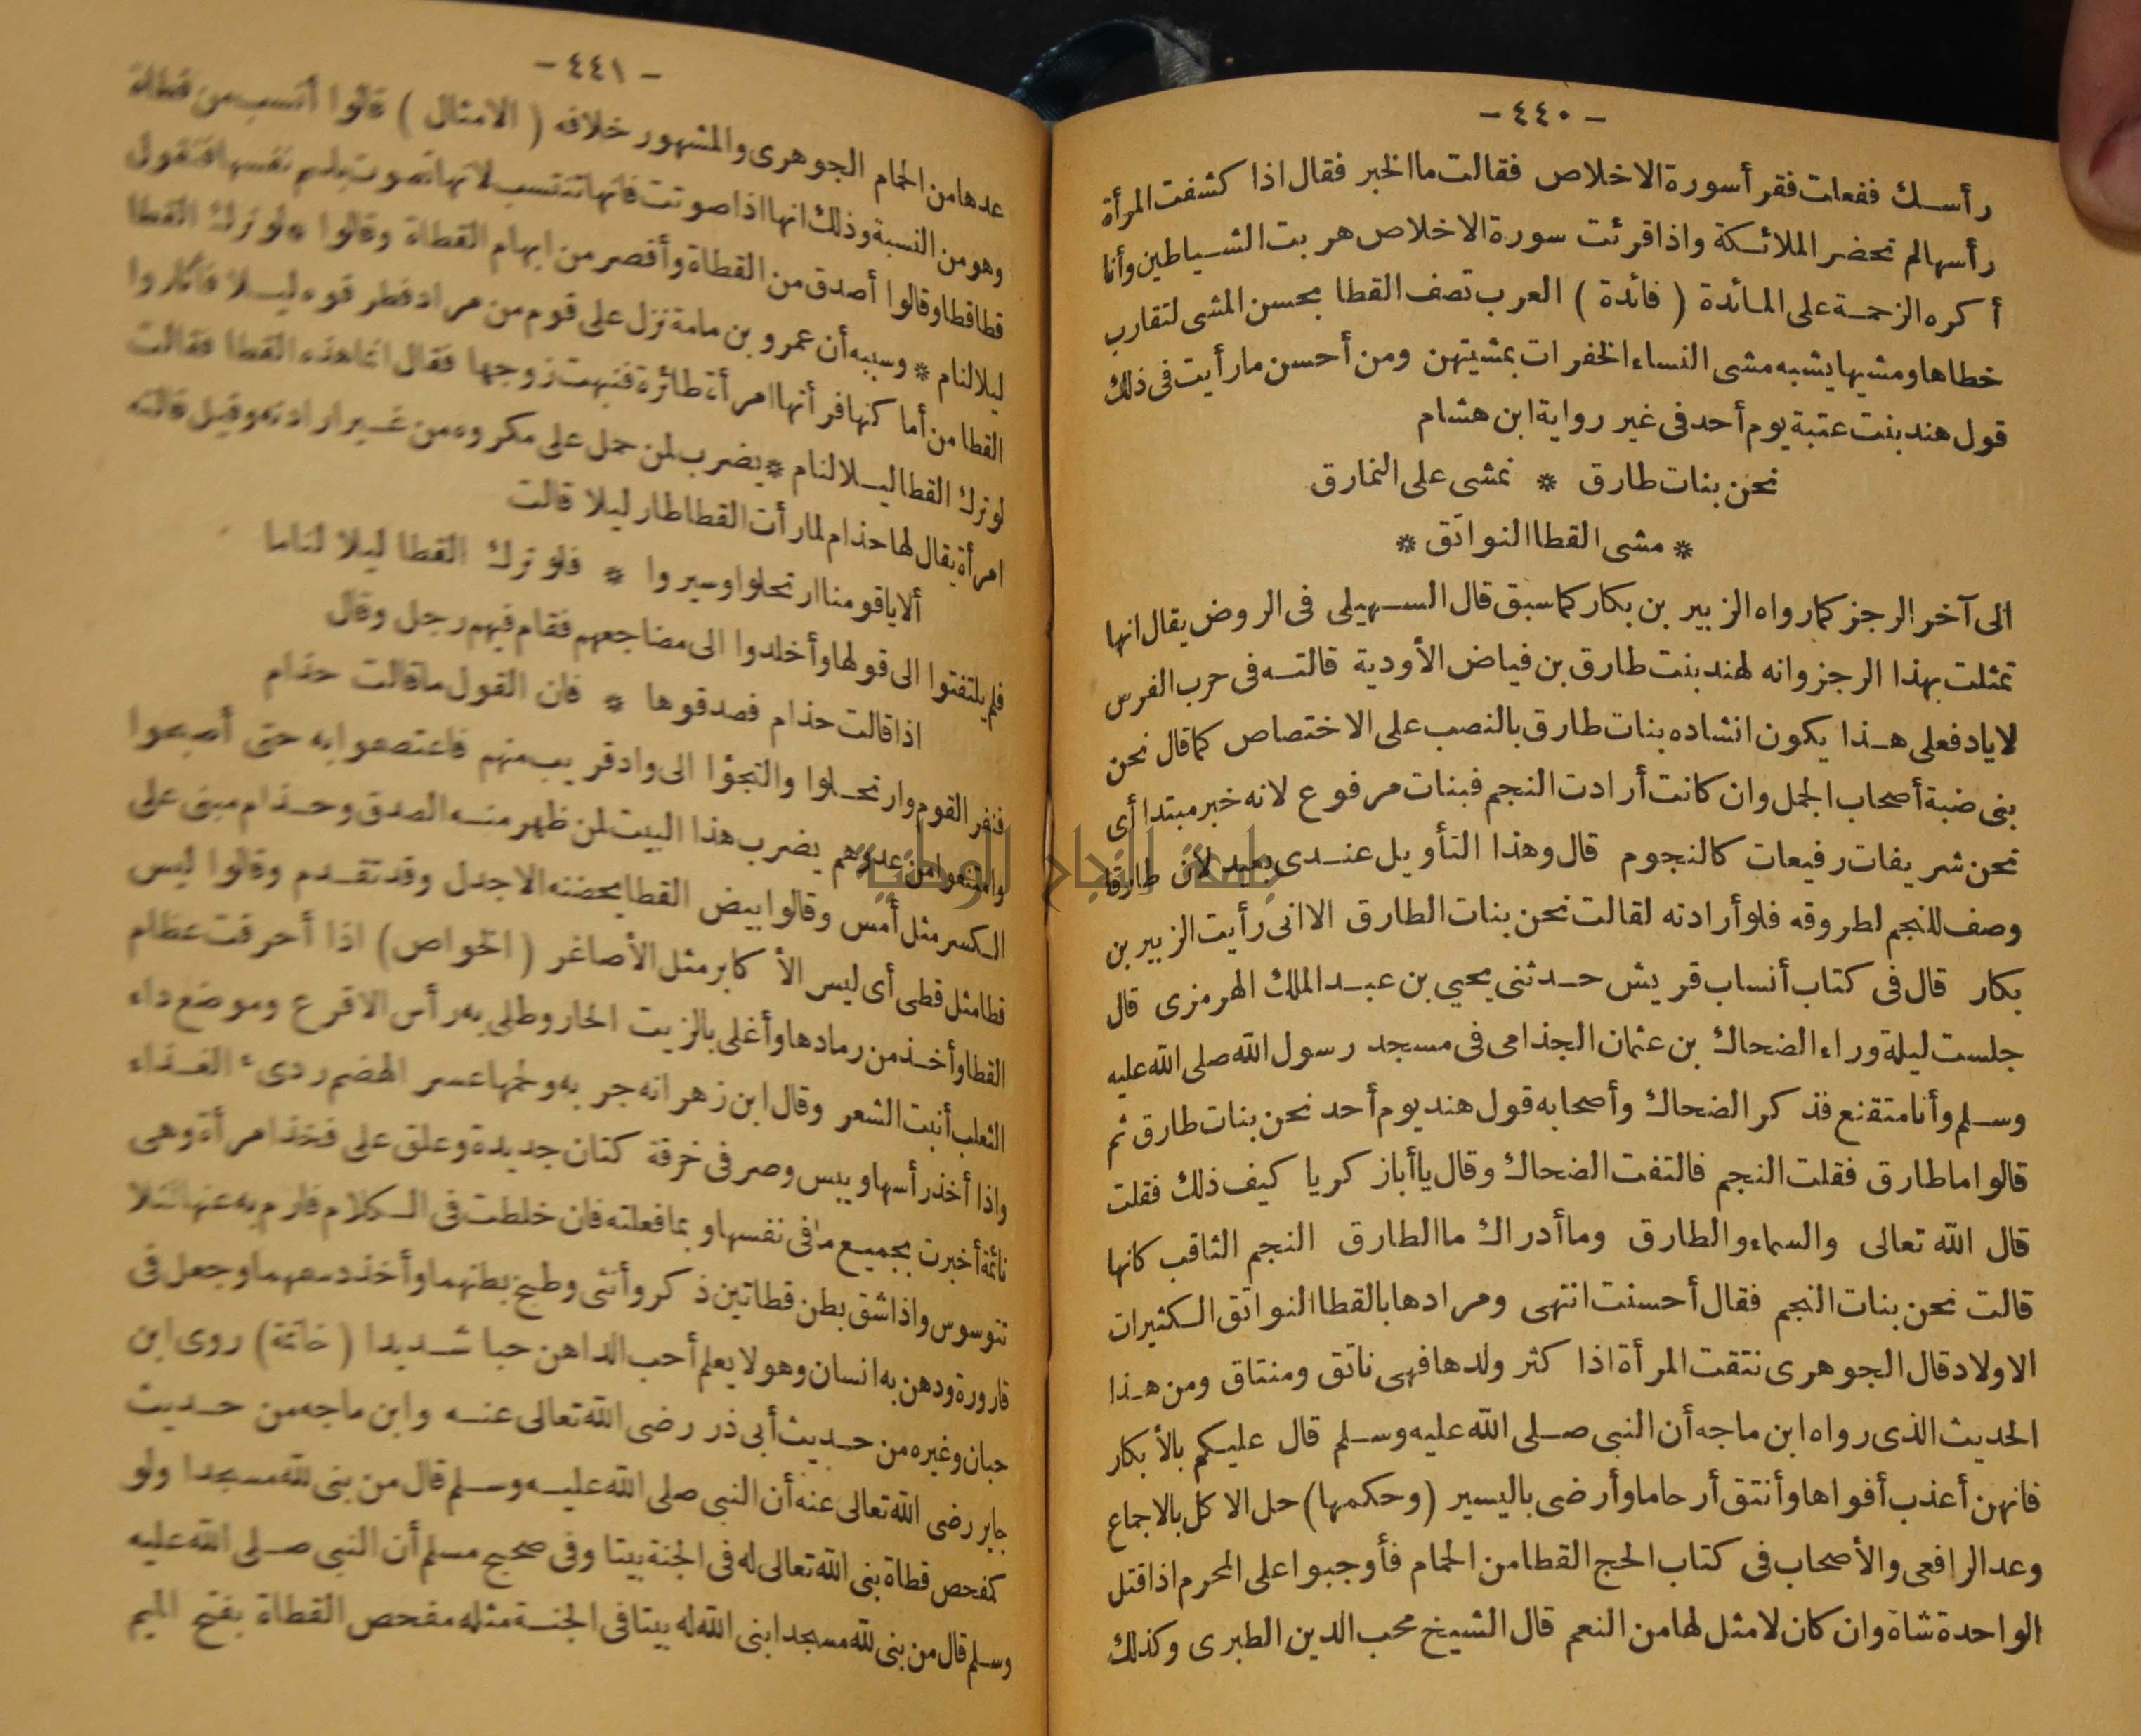 - ٤٤٠ -
رأسك ففعلت فقرأ سورة الاخلاص فقالت ما الخبر فقال اذا كشفت المرأة
رأسها لم تحضر الملائكة واذا قرئت سورة الاخلاص هربت الشياطين وأنا
أكره الزحمة على المائدة ( فائدة ) العرب تصف القطا بحسن المشى لتقارب
خطاها ومشيها يشبه مشى النساء الخفرات بمشيتهن ومن أحسن ما رأيت فى ذلك
قول هند بنت عتبة يوم أحد فى غير رواية ابن هشام
نحن بنات طارق * نمشى على النمارق
* مشى القطا النواتق *
الى آخر الرجز كما رواه الزبير بن بكار كما سبق قال السهيلى فى الروض يقال انها
تمثلت بهذا الرجز وانه لهند بنت طارق بن فياض الأودية قالته فى حرب الفرس
لاياد فعلى هذا يكون انشاده بنات طارق بالنصب على الاختصاص كما قال نحن
بنى ضبة أصحاب الجمل وان كانت أرادت النجم فبنات مرفوع لانه خبر مبتدا أى
نحن شريفات رفيعات كالنجوم قال وهذا التأويل عندى بعيد لأن طارقا
وصف للنجم لطروقه فلو أرادته لقالت نحن بنات الطارق الا انى رأيت الزبير بن
بكار قال فى كتاب أنساب قريش حدثنى يحيي بن عبد الملك الهرمزى قال
جلست ليلة وراء الضحاك بن عثمان الجذامى فى مسجد رسول الله صلى الله عليه
وسلم وأنا متقنع فذكر الضحاك وأصحابه قول هند يوم أحد نحن بنات طارق ثم
قالوا ما طارق فقلت النجم فالتفت الضحاك وقال يا أبا زكريا كيف ذلك فقلت
قال الله تعالى والسماء والطارق وما أدراك ما الطارق النجم الثاقب كانها
قالت نحن بنات النجم فقال أحسنت انتهى ومرادها بالقطا النواتق الكثيرات
الاولاد قال الجوهرى نتقت المرأة اذا كثر ولدها فهى ناتق ومنتاق ومن هذا
الحديث الذى رواه ابن ماجه أن النبى صلى الله عليه وسلم قال عليكم بالأبكار
فانهن أعذب أفواها وأنتق أرحاما وأرضى باليسير ( وحكمها ) حل الاكل بالاجماع
وعد الرافعى والأصحاب فى كتاب الحج القطا من الحمام فأوجبوا على المحرم اذا قتل
الواحدة شاة وان كان لا مثل لها من النعم قال الشيخ محب الدين الطبرى وكذلك
- ٤٤١ -
عدها من الحمام الجوهرى والمشهور خلافه ( الامثال ) قالوا أنسب من قطاة
وهو من النسبة وذلك انها اذا صوتت فانها تنتسب لانها تصوت باسم نفسها فتقول
قطا قطا وقالوا أصدق من القطاة وأقصر من ابهام القطاة وقالوا * لو ترك القطا
ليلا لنام * وسببه أن عمرو بن مامة نزل على قوم من مراد فطرقوه ليلا فأثاروا
القطا من أماكنها فرأتها امرأته طائرة فنبهت زوجها فقال انما هذه القطا فقالت
لو ترك القطا ليلا لنام * يضرب لمن حمل على مكروه من غير ارادته وقيل قالته
امرأة يقال لها حذام لما رأت القطا طار ليلا قالت
ألا يا قومنا ارتحلوا وسيروا * فلو ترك القطا ليلا لناما
فلم يلتفتوا الى قولها وأخلدوا الى مضاجعهم فقام فيهم رجل وقال
اذا قالت حذام فصدقوها * فان القول ما قالت حذام
فنفر القوم وارتحلوا والتجؤا الى واد قريب منهم فاعتصموا به حتى أصبحوا
وامتنعوا من عدوهم يضرب هذا البيت لمن ظهر منه الصدق وحذام مبنى على
الكسر مثل أمس وقالوا بيض القطا يحضنه الاجدل وقد تقدم وقالوا ليس
قطا مثل قطى أى ليس الأكابر مثل الأصاغر ( الخواص ) اذا أحرقت عظام
القطا وأخذ من رمادها وأغلى بالزيت الحار وطلى به رأس الاقرع وموضع داء
الثعلب أنبت الشعر وقال ابن زهر انه جربه ولحمها عسر الهضم ردىء الغذاء
واذا أخذ رأسها ويبس وصر فى خرقة كتان جديدة وعلق على فخذ امرأة وهى
نائمة أخبرت بجميع ما فى نفسها وبما فعلته فان خلطت فى الكلام فارم به عنها لئلا
تتوسوس واذا شق بطن قطاتين ذكر وأنثى وطبخ بطنهما وأخذ دسمهما وجعل فى
قارورة ودهن به انسان وهو لا يعلم أحب الداهن حبا شديدا ( خاتمة ) روى ابن
حبان وغيره من حديث أبى ذر رضى الله تعالى عنه وابن ماجه من حديث
جابر رضى الله تعالى عنه أن النبى صلى الله عليه وسلم قال من بنى لله مسجدا ولو
كمفحص قطاة بنى الله تعالى له فى الجنة بيتا وفى صحيح مسلم أن النبى صلى الله عليه
وسلم قال من بنى لله مسجدا بنى الله له بيتا فى الجنة مثله مفحص القطاة بفتح الميم
جامعة النجاح الوطنية